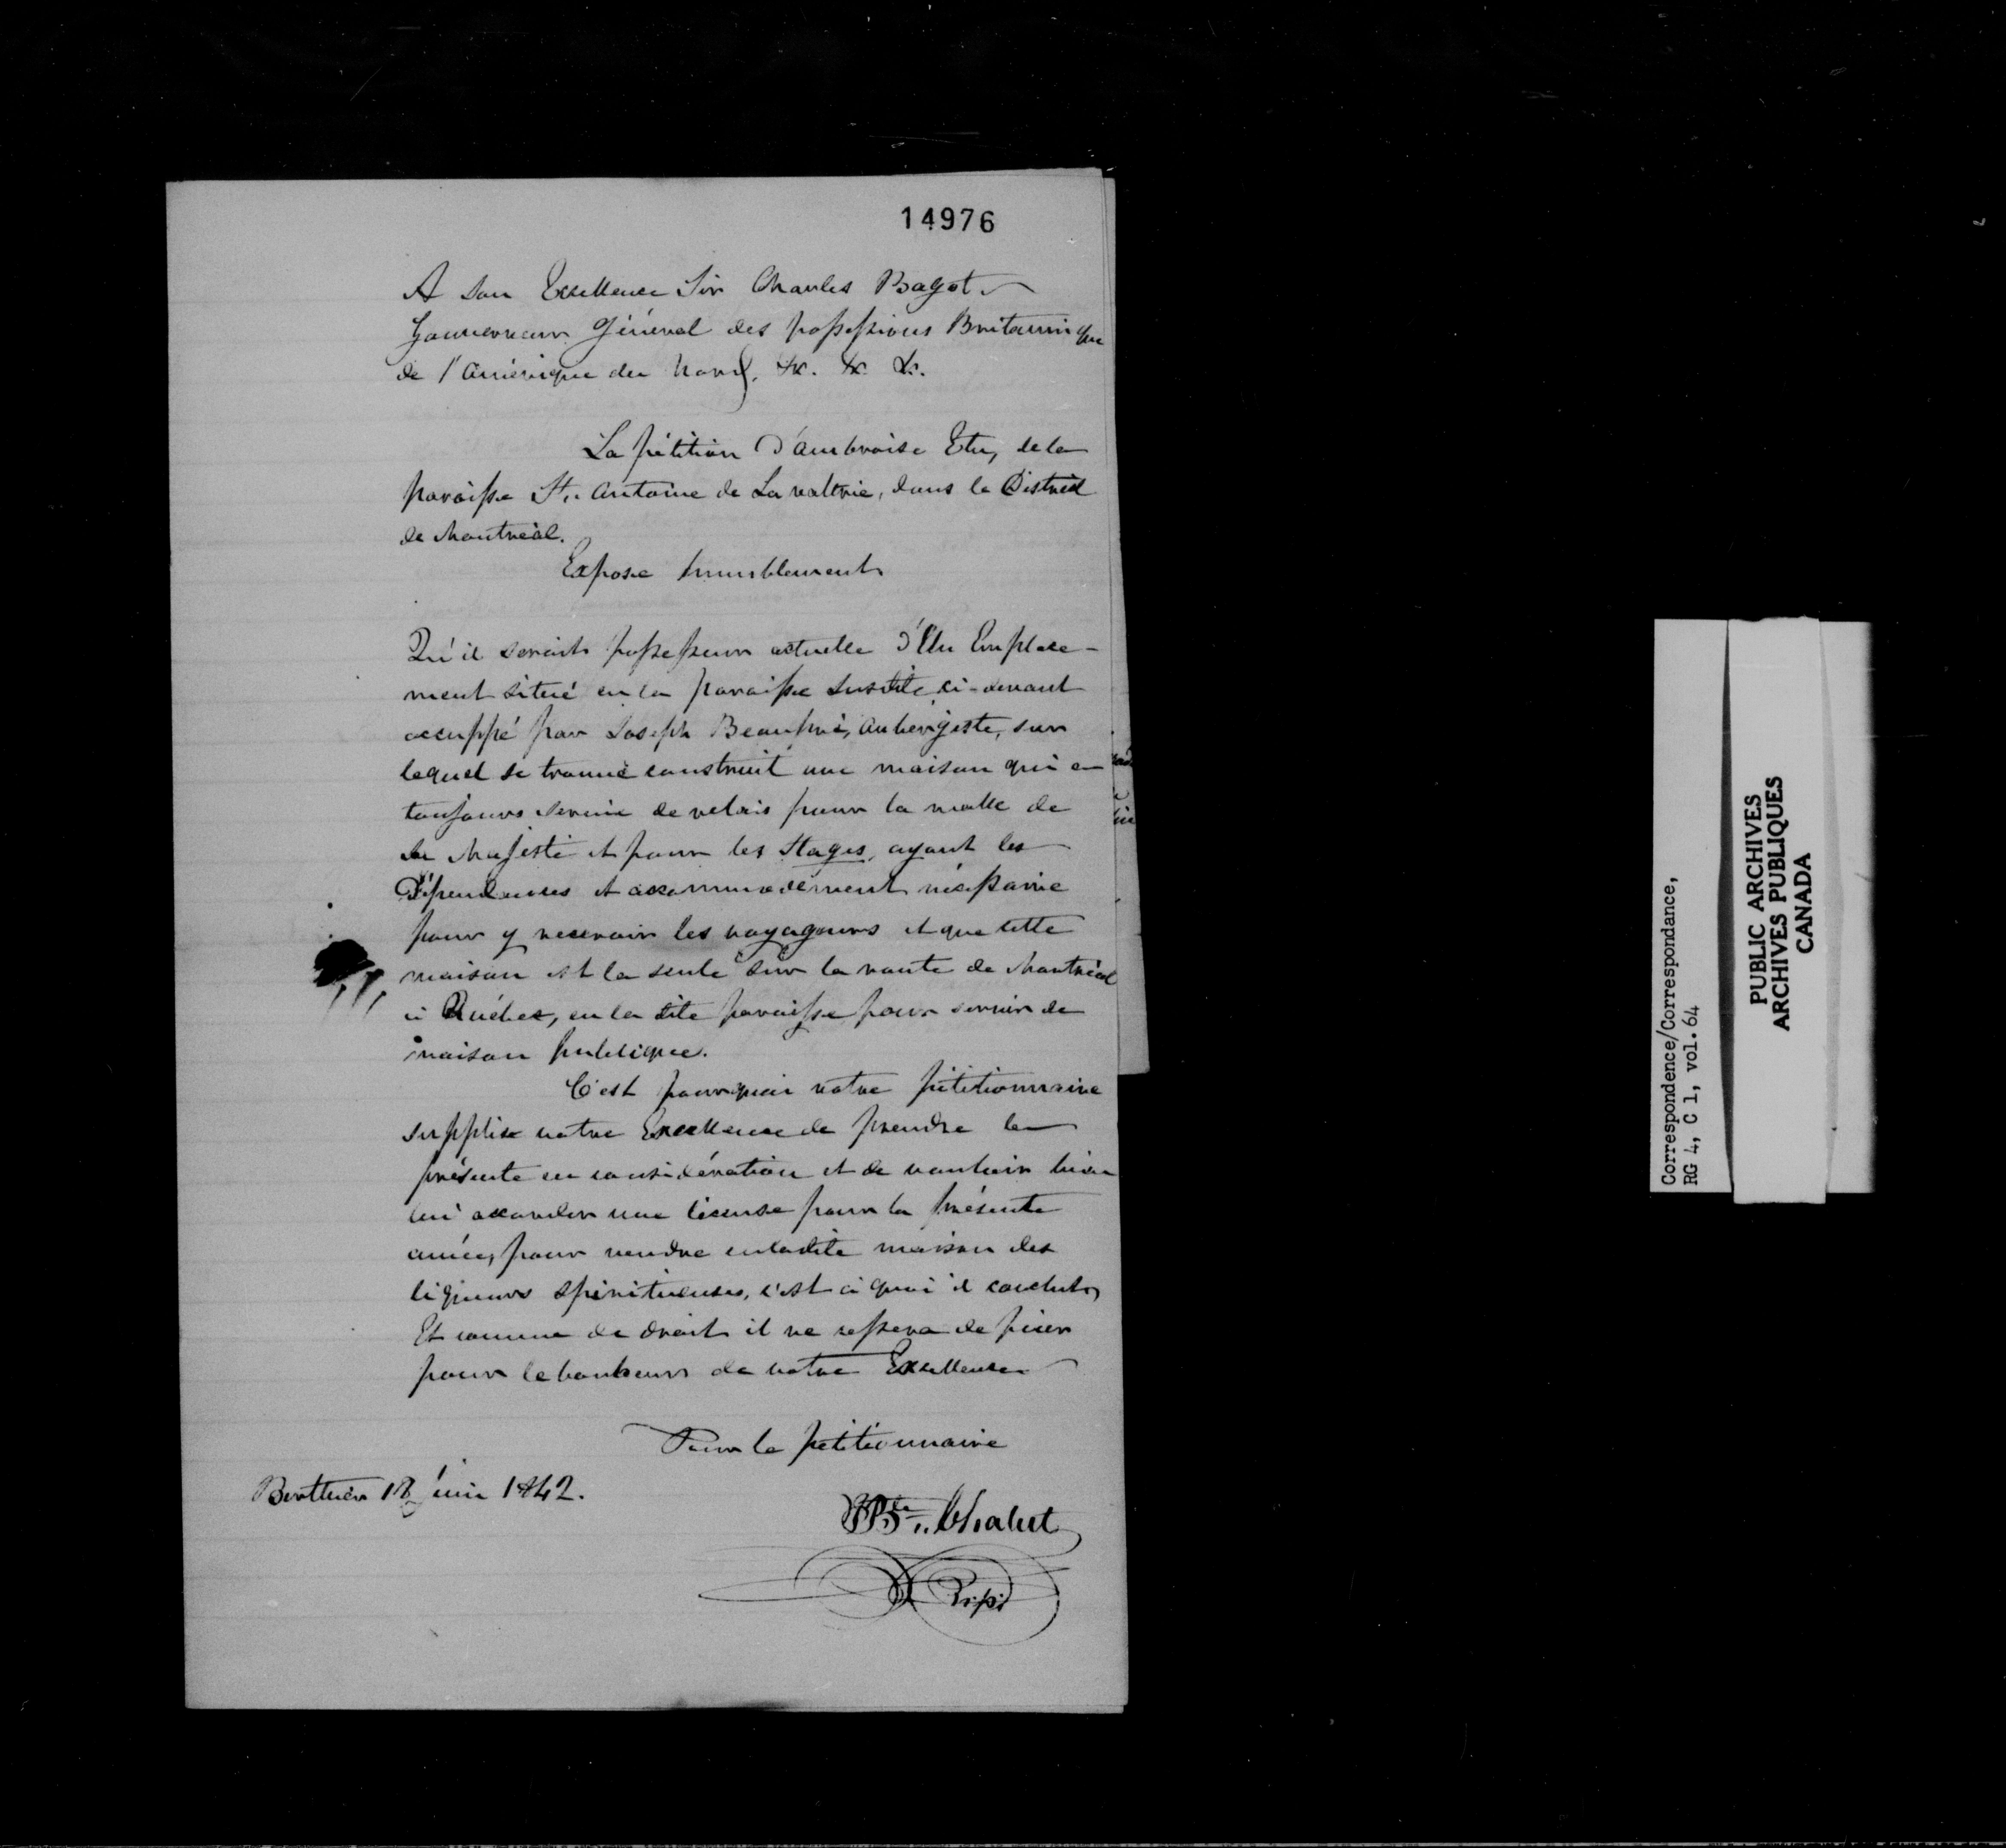 14976
A Son Excellence Sir Charles Bagot
Gouverneur Général des possessions Britannique
de l'Amérique du Nord, &c. &c. &c.
La pétition d'Ambroise Etu, de la
paroisse St. Antoine de Lavaltrie, dans le District
de Montréal.
Expose humblement
Qu'il serait possesseur actuelle d'Un Emplace-
ment situé en la paroisse susdite ci-devant
occuppé par Joseph Beaupré, Aubergiste, sur
lequel se trouve construit une maison qui a
toujours servie de relais pour la malle de
Sa Majesté et pour les Stages, ayant les
Dépendances et accommodement nécessaire
pour y recevoir les voyageurs et que cette
maison est la seule sur la route de Montréal
à Québec, en la dite paroisse pour servir de
maison publique.
C'est pourquoi votre pétitionnaire
supplie votre Excellence de prendre la
présente en considération et de vouloir bien
lui accorder une license pour la présente
année, pour vendre en la dite maison des
liqueurs spiritueuses, c'est à quoi il conclut,
Et comme de droit il ne cessera de prier
pour le bonheur de votre Excellence
Pour le pétitionnaire
Berthier 18 juin 1842.
JBte. Chalut
Correspondence/Correspondance,
RG 4, C 1, vol. 64
PUBLIC ARCHIVES
ARCHIVES PUBLIQUES
CANADA